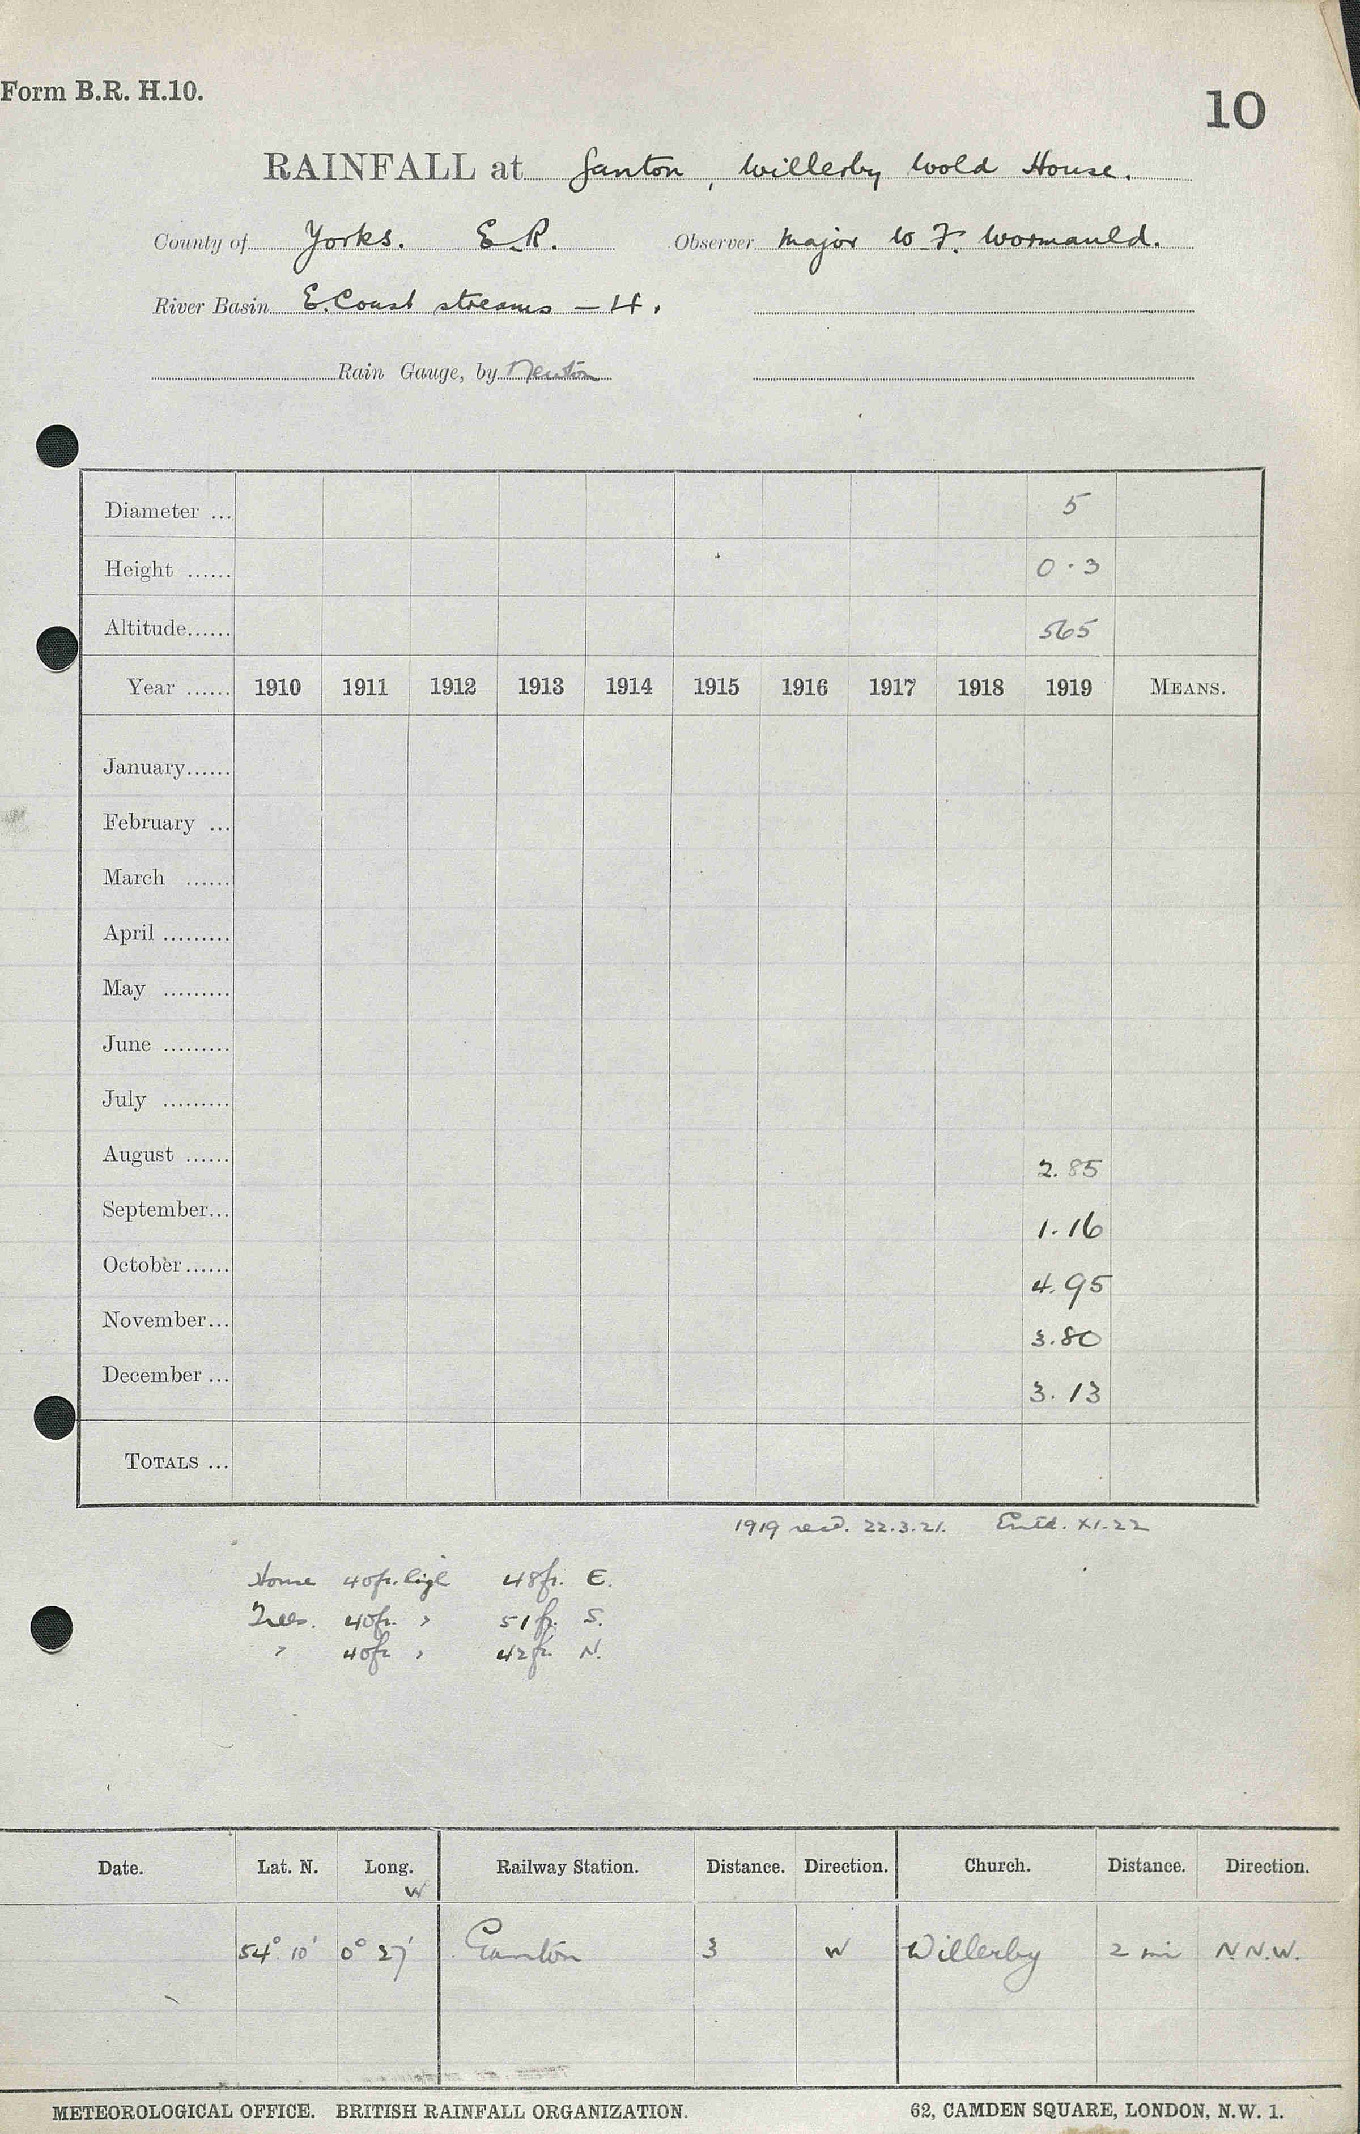 Form B.R. H.10.
10
RAINFALL at Ganton, Willerby Wold House.
County of Yorks. E.R. Observer Major W F. Wormauld.
River Basin E. Coast streams — 4.
Rain Gauge, by Newton
Diameter ... 5
Height ...... 0.3
Altitude...... 565
Year ...... 1910 1911 1912 1913 1914 1915 1916 1917 1918 1919 MEANS.
January......
February ...
March ......
April .........
May .........
June .........
July .........
August ...... 2.85
September... 1.16
October...... 4.95
November... 3.80
December ... 3.13
TOTALS ...
1919 recd. 22.3.21. Entd. XI.22
House 40ft. high 48ft. E.
Trees. 40ft. " 51ft. S.
" 40ft " 42ft. N.
Date. Lat. N. Long. W Railway Station. Distance. Direction. Church. Distance. Direction.
54° 10' 0° 27' Ganton 3 W Willerby 2 mi N.N.W.
METEOROLOGICAL OFFICE. BRITISH RAINFALL ORGANIZATION. 62, CAMDEN SQUARE, LONDON, N.W. 1.